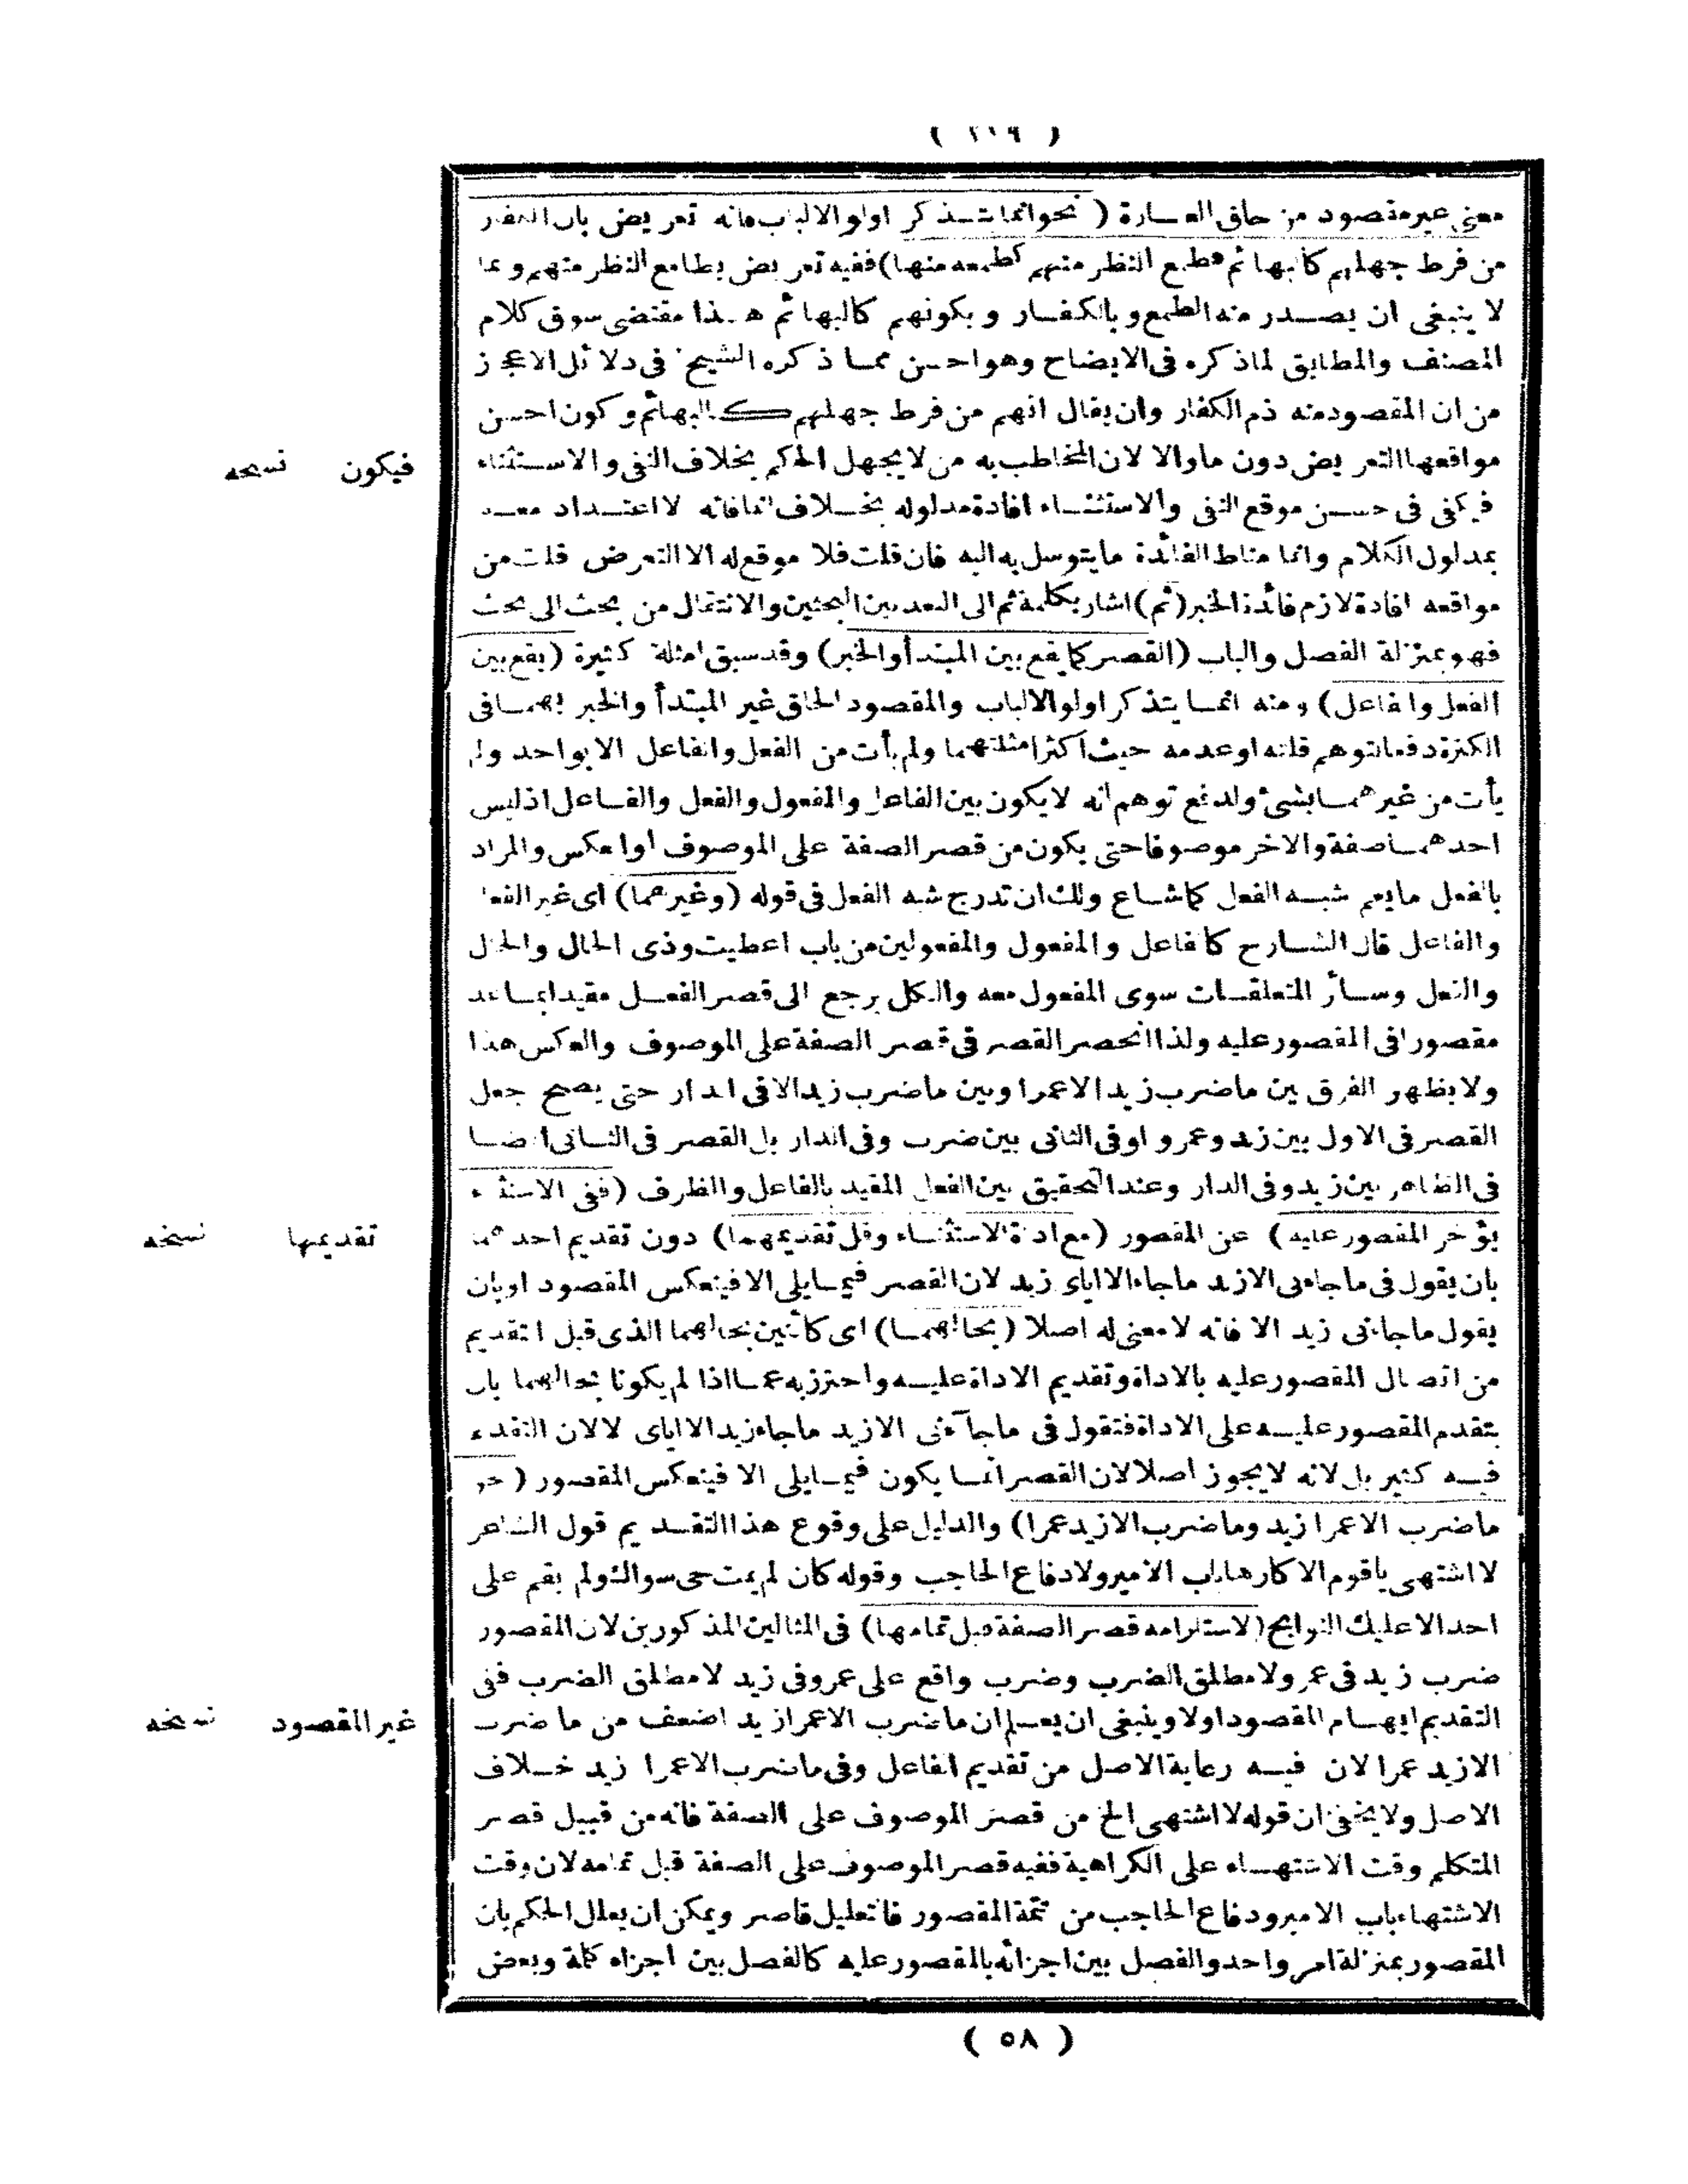 ( ٢٢٩ )
معنى غير مقصود من حاق العبارة ( نحو انما يتذكر اولو الالباب فانه تعريض بان الكفار
من فرط جهلهم كالبهائم فطمع النظر منهم كطمعه منها) ففيه تعريض بطامع النظر منهم وبما
لا ينبغى ان يصدر منه الطمع وبالكفار وبكونهم كالبهائم هذا مقتضى سوق كلام
المصنف والمطابق لما ذكره فى الايضاح وهو احسن مما ذكره الشيخ فى دلائل الاعجاز
من ان المقصود منه ذم الكفار وان يقال انهم من فرط جهلهم كالبهائم وكون احسن
مواقعها التعريض دون ما والا لان المخاطب به من لا يجهل الحكم بخلاف النفى والاستثناء
فيكون نسخه
فيكفى فى حسن موقع النفى والاستثناء افادة مدلوله بخلاف انما فانه لا اعتداد معه
بمدلول الكلام وانما مناط الفائدة ما يتوسل به اليه فان قلت فلا موقع له الا التعرض قلت من
مواقعه افادة لازم فائدة الخبر (ثم) اشار بكلمة ثم الى البعد بين البحثين والانتقال من بحث الى بحث
فهو بمنزلة الفصل والباب (القصر كما يقع بين المبتدأ والخبر) وقد سبق امثلة كثيرة (يقع بين
الفعل والفاعل) ومنه انما يتذكر اولو الالباب والمقصود الحاق غير المبتدأ والخبر بهما فى
الكثرة دفعا لتوهم قلته او عدمه حيث اكثر امثلتهما ولم يأت من الفعل والفاعل الا بواحد ولم
يأت من غيرهما بشئ ولدفع توهم انه لا يكون بين الفاعل والمفعول والفعل والفاعل اذ ليس
احدهما صفة والاخر موصوفا حتى يكون من قصر الصفة على الموصوف او العكس والمراد
بالفعل ما يعم شبه الفعل كما شاع ولك ان تدرج شبه الفعل فى قوله (وغيرهما) اى غير الفعل
والفاعل قال الشارح كالفاعل والمفعول والمفعولين من باب اعطيت وذى الحال والحال
والفعل وسائر المتعلقات سوى المفعول معه والكل يرجع الى قصر الفعل مقيدا بما عد
مقصورا فى المقصور عليه ولذا انحصر القصر فى قصر الصفة على الموصوف والعكس هذا
ولا يظهر الفرق بين ما ضرب زيد الا عمرا وبين ما ضرب زيد الا فى الدار حتى يصح جعل
القصر فى الاول بين زيد وعمرو او فى الثانى بين ضرب وفى الدار بل القصر فى الثانى ايضا
فى الظاهر بين زيد وفى الدار وعند التحقيق بين الفعل المقيد بالفاعل والظرف (ففى الاستثناء
يؤخر المقصور عليه) عن المقصور (مع اداة الاستثناء وقل تقديمهما) دون تقديم احدهما
تقديمها نسخه
بان يقول فى ما جاءنى الا زيد ما جاء الا اياى زيد لان القصر فيما يلى الا فينعكس المقصود او بان
يقول ما جاءنى زيد الا فانه لا معنى له اصلا (بحالهما) اى كائنين بحالهما الذى قبل التقديم
من اتصال المقصور عليه بالاداة وتقديم الاداة عليه واحترز به عما اذا لم يكونا بحالهما بان
يتقدم المقصور عليه على الاداة فتقول فى ما جآءنى الا زيد ما جاء زيد الا اياى لا لان التقديم
فيه كثير بل لانه لا يجوز اصلا لان القصر انما يكون فيما يلى الا فينعكس المقصور (نحو
ما ضرب الا عمرا زيد وما ضرب الا زيد عمرا) والدليل على وقوع هذا التقديم قول الشاعر
لا اشتهى ياقوم الا كارها باب الامير ولا دفاع الحاجب وقوله كان لم يمت حى سواك ولم يقم على
احد الا عليك النوايح (لاستلزامه قصر الصفة قبل تمامها) فى المثالين المذكورين لان المقصور
ضرب زيد فى عمرو لا مطلق الضرب وضرب واقع على عمرو فى زيد لا مطلق الضرب ففى
التقديم ايهام المقصود اولا وينبغى ان يعلم ان ما ضرب الا عمرا زيد اضعف من ما ضرب
غير المقصود نسخه
الا زيد عمرا لان فيه رعاية الاصل من تقديم الفاعل وفى ما ضرب الا عمرا زيد خلاف
الاصل ولا يخفى ان قوله لا اشتهى الخ من قصر الموصوف على الصفة فانه من قبيل قصر
المتكلم وقت الاشتهاء على الكراهية ففيه قصر الموصوف على الصفة قبل تمامه لان وقت
الاشتهاء باب الامير ودفاع الحاجب من تتمة المقصور فالتعليل قاصر ويمكن ان يعلل الحكم بان
المقصور بمنزلة امر واحد والفصل بين اجزائه بالمقصور عليه كالفصل بين اجزاء كلمة وبعض
( ٥٨ )